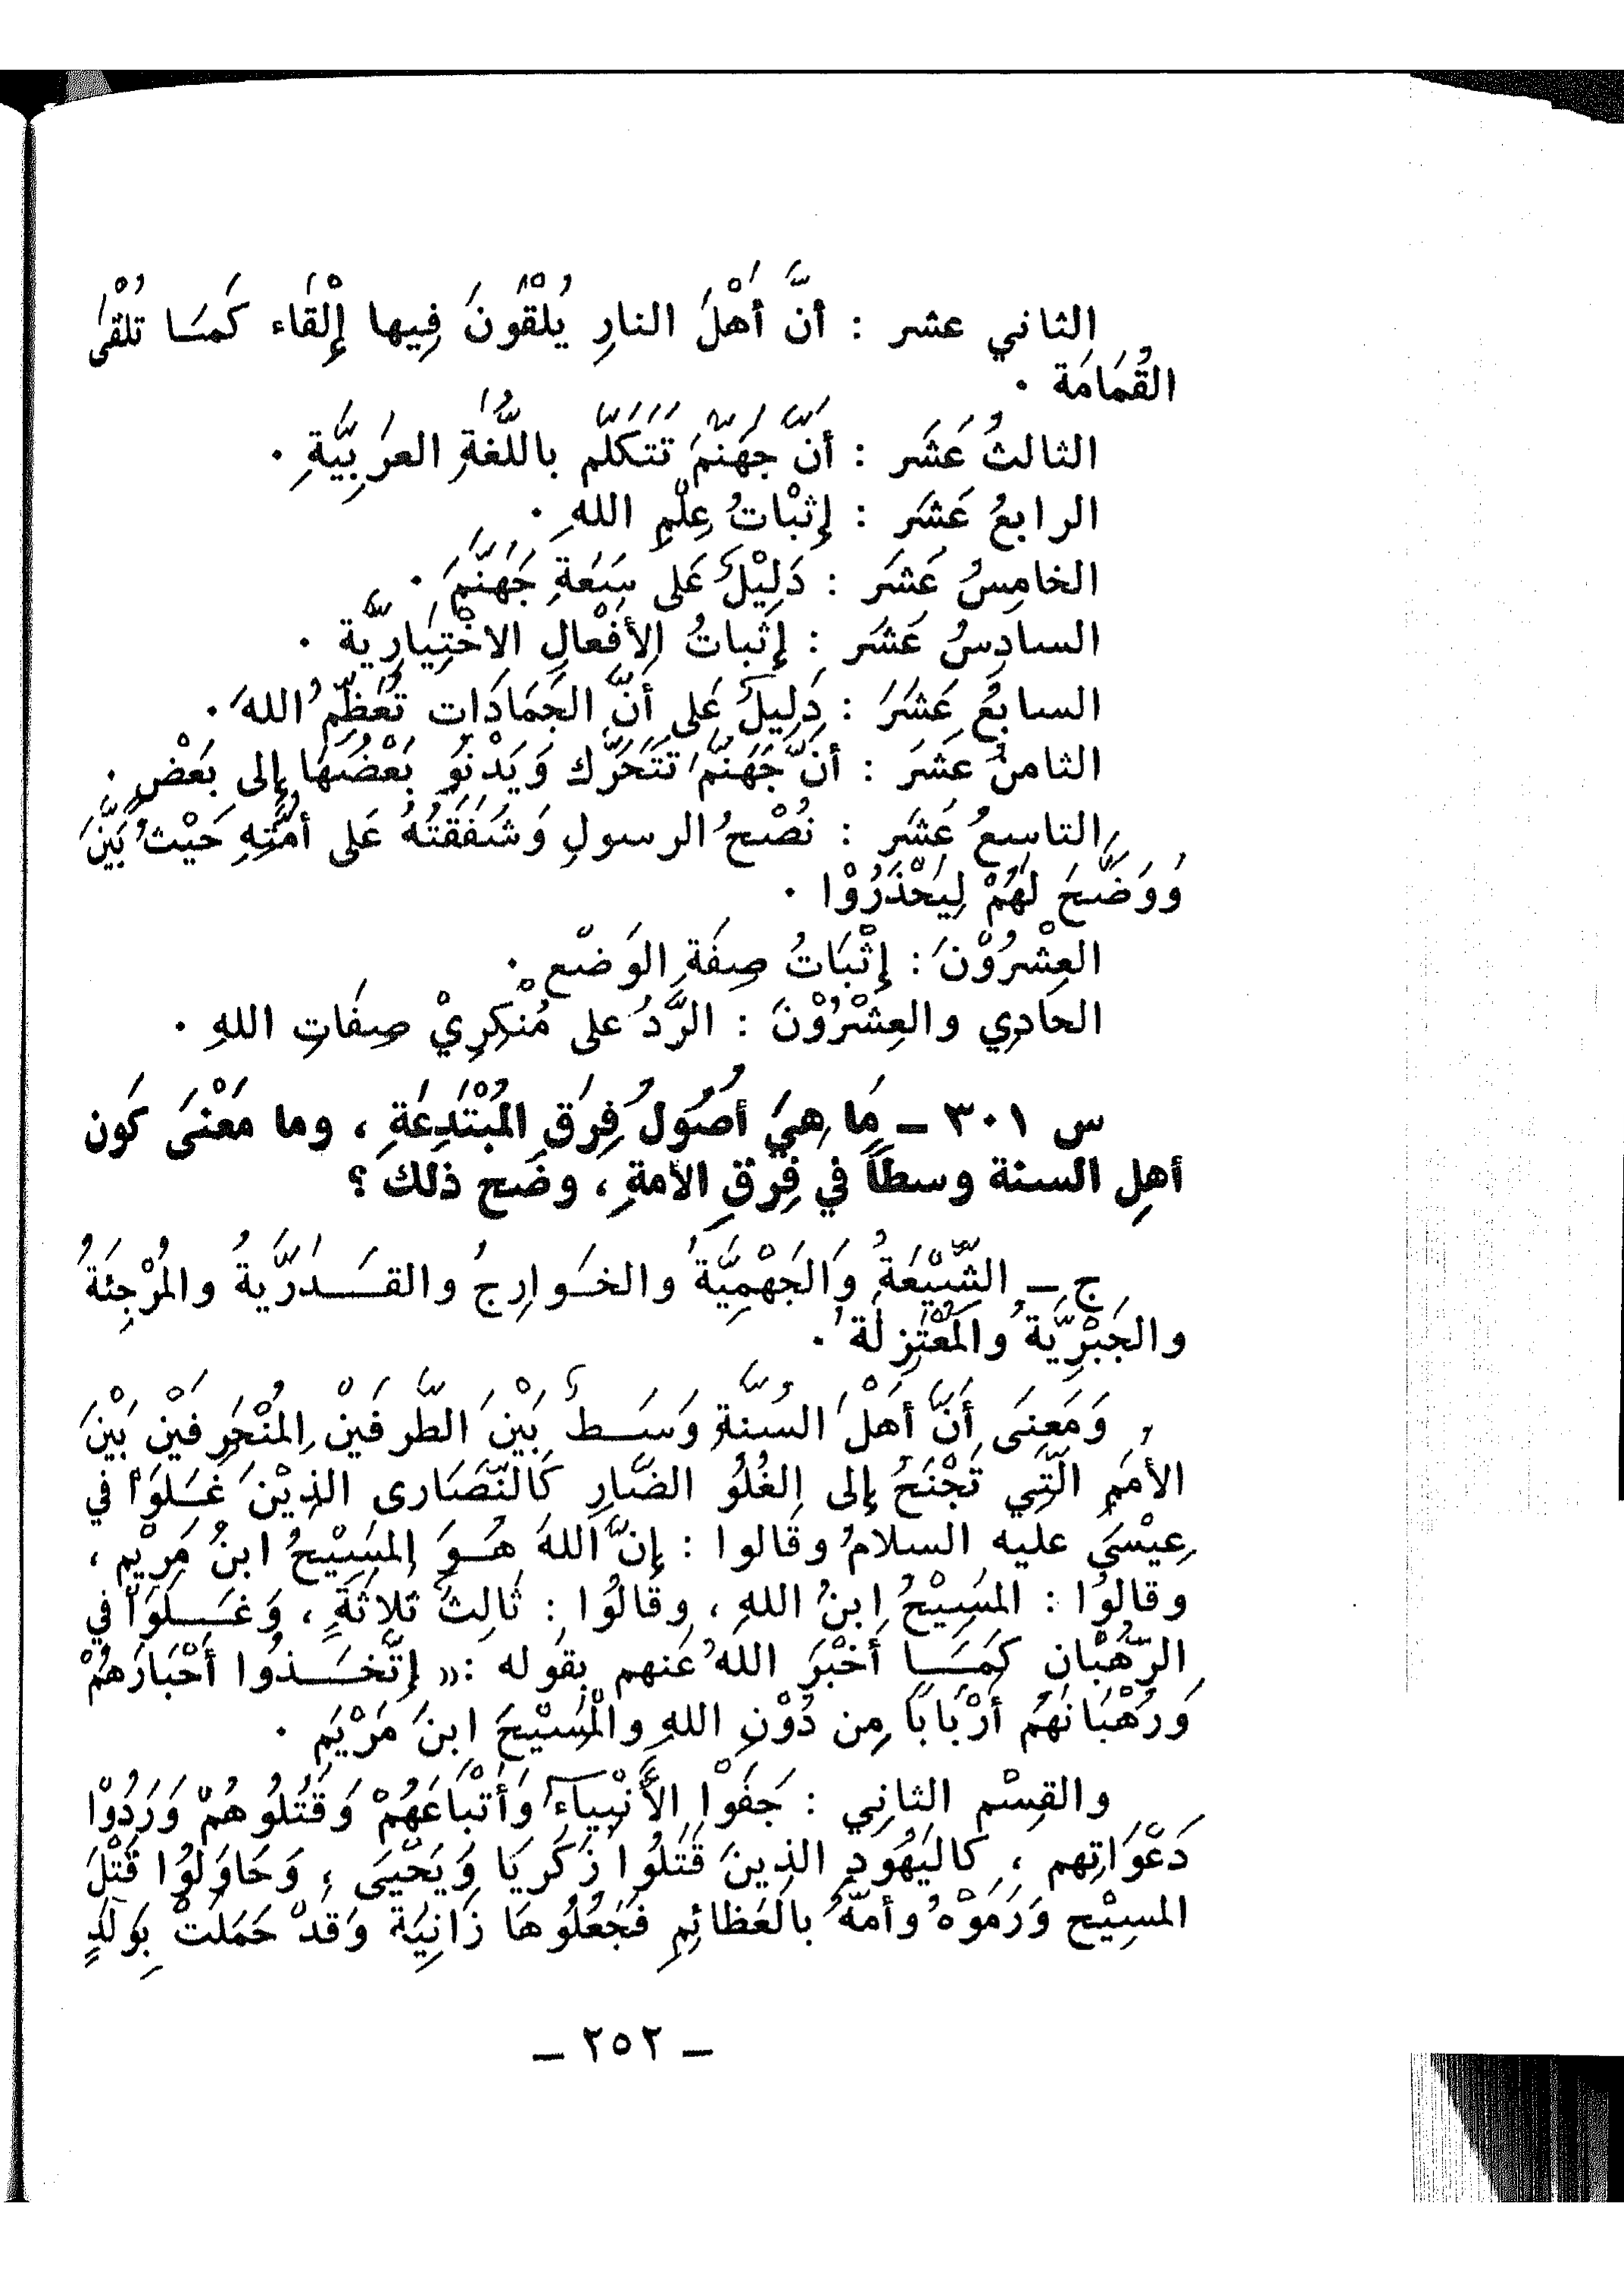 الثاني عشر : أنَّ أَهْلَ النارِ يُلْقَوْنَ فِيها إِلْقَاء كَمَا تُلْقىٰ
القُمَامَة .
الثالثُ عَشَر : أنَّ جَهَنَّمَ تَتَكَلَّم باللُّغَةِ العَرَبِيَّةِ .
الرابعُ عَشَر : إِثبْاتُ عِلْمِ اللهِ .
الخامِسُ عَشَر : دَلِيْلٌ عَلى سِعَةِ جَهَنَّمَ .
السادِسُ عَشَر : إِثباتُ الأَفْعالِ الاخْتِيَارِيَّة .
السابِعُ عَشَرَ : دَلِيلٌ عَلى أنَّ الجَمَادَات تُعَظِّمُ اللهَ .
الثامنُ عَشَرَ : أنَّ جَهَنَّمَ تَتَحَرَّك وَيَدْنُو بَعْضُهَا إلى بَعْضٍ .
التاسِعُ عَشَر : نُصْحُ الرسولِ وَشَفَقَتُهُ عَلى أُمَّتِهِ حَيْثُ بَيَّنَ
وَوَضَّحَ لَهُمْ لِيَحْذَرُوْا .
العِشْرُوْنَ : إِثْبَاتُ صِفَةِ الوَضْع .
الحَادِي والعِشْرُوْنَ : الرَّدُ على مُنْكِرِيْ صِفَاتِ اللهِ .
س ٣٠١ ــ مَا هِيَ أُصُولُ فِرَقِ المُبْتَدِعَةِ ، وما مَعْنَى كَون
أهلِ السنة وسطاً في فِرَقِ الأمةِ ، وضَح ذلك ؟
ج ــ الشِّيْعَةُ وَالجَهْمِيَّةُ والخَوارِجُ والقَدَرَّيةُ والمُرْجِئَةُ
والجَبْرِيَّةُ والمُعْتَزِلَة .
وَمَعنَى أَنَّ أَهْلَ السُنَّةِ وَسَطٌ بَيْنَ الطَّرفَيْنِ المُنْحَرِفَيْن بَيْنَ
الأُمَم الَّتِي تَجْنَحُ إلى الغُلُو الضَّارِ كَالنَّصَارى الذِيْنَ غَلَوْا في
عِيْسَى عليه السلامُ وقَالوا : إنَّ اللهَ هُوَ المسَيْحُ ابنُ مَرْيَمِ ،
وقالوُا : المسَيْحُ ابنُ اللهِ ، وقَالُوا : ثَالِثُ ثَلاثَةٍ ، وَغَلَوْا في
الرُّهْبَانِ كَمَا أَخْبَرَ اللهُ عَنهم بِقَوله : « إتَّخَذُوا أَحْبَارَهُمْ
وَرُهْبَانَهُم أَرْبَاباً مِن دُوْنِ اللهِ والْمَسيْحَ ابنَ مَرْيَمِ .
والقِسْم الثانِي : جَفَوْا الأَنْبِياءَ وَأَتْبَاعَهُمْ وَقَتَلُوهُمْ وَرَدُوْا
دَعْوَاتِهم ، كَاليَهُودِ الذِينَ قَتَلُوا زَكَرِيَا وَيَحْيَى ، وَحَاوَلُوا قَتْلَ
المسِيْح وَرَمَوْهُ وأمَّهُ بالعَظائِمِ فَجَعَلُوهَا زَانِيَة وَقَدْ حَمَلَتْ بِوَلَدٍ
ــ ٢٥٢ ــ